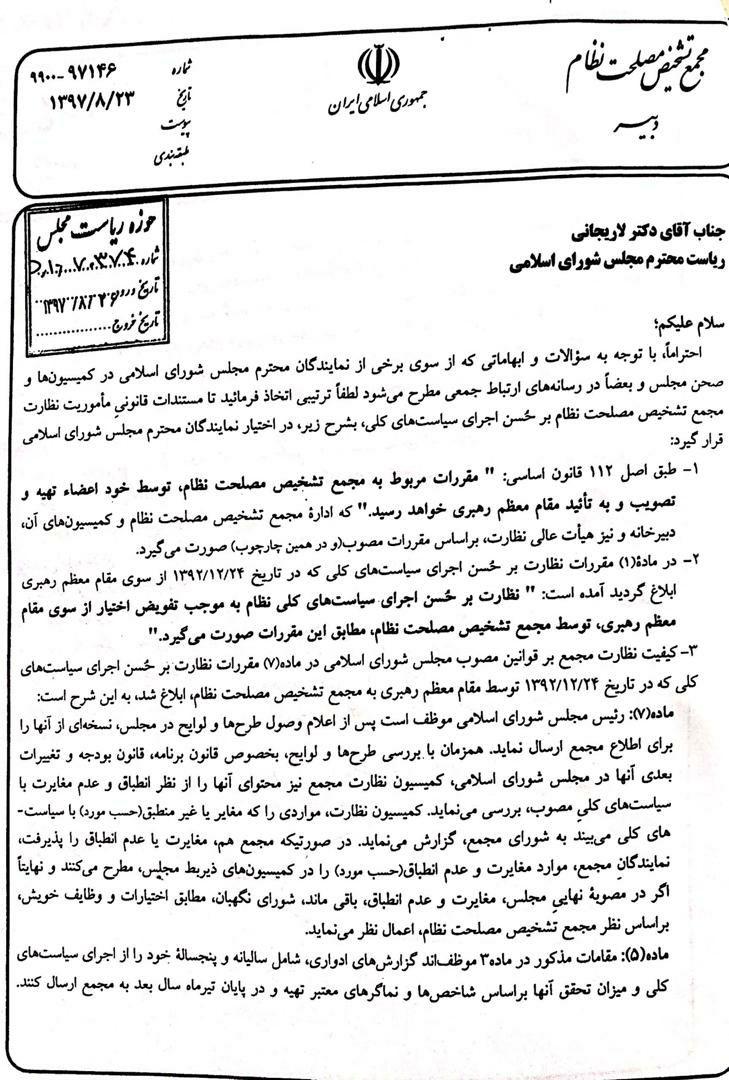 مجمع تشخیص مصلحت نظام
دبیر
جمهوری اسلامی ایران
شماره ۹۷۱۴۶-۹۹۰۰
تاریخ ۱۳۹۷/۸/۲۳
پیوست
طبقه‌بندی
حوزه ریاست مجلس
شماره
تاریخ ورود ۱۳۹۷/۸/۲۶
تاریخ خروج
جناب آقای دکتر لاریجانی
ریاست محترم مجلس شورای اسلامی
سلام علیکم؛
احتراماً، با توجه به سؤالات و ابهاماتی که از سوی برخی از نمایندگان محترم مجلس شورای اسلامی در کمیسیون‌ها و
صحن مجلس و بعضاً در رسانه‌های ارتباط جمعی مطرح می‌شود لطفاً ترتیبی اتخاذ فرمائید تا مستندات قانونیِ مأموریت نظارت
مجمع تشخیص مصلحت نظام بر حُسن اجرای سیاست‌های کلی، بشرح زیر، در اختیار نمایندگان محترم مجلس شورای اسلامی
قرار گیرد:
۱- طبق اصل ۱۱۲ قانون اساسی: " مقررات مربوط به مجمع تشخیص مصلحت نظام، توسط خود اعضاء تهیه و
تصویب و به تأئید مقام معظم رهبری خواهد رسید." که ادارهٔ مجمع تشخیص مصلحت نظام و کمیسیون‌های آن،
دبیرخانه و نیز هیأت عالی نظارت، براساس مقررات مصوب(و در همین چارچوب) صورت می‌گیرد.
۲- در مادهٔ(۱) مقررات نظارت بر حُسن اجرای سیاست‌های کلی که در تاریخ ۱۳۹۲/۱۲/۲۴ از سوی مقام معظم رهبری
ابلاغ گردید آمده است: " نظارت بر حُسن اجرای سیاست‌های کلی نظام به موجب تفویض اختیار از سوی مقام
معظم رهبری، توسط مجمع تشخیص مصلحت نظام، مطابق این مقررات صورت می‌گیرد."
۳- کیفیت نظارت مجمع بر قوانین مصوب مجلس شورای اسلامی در ماده(۷) مقررات نظارت بر حُسن اجرای سیاست‌های
کلی که در تاریخ ۱۳۹۲/۱۲/۲۴ توسط مقام معظم رهبری به مجمع تشخیص مصلحت نظام، ابلاغ شد، به این شرح است:
ماده(۷): رئیس مجلس شورای اسلامی موظف است پس از اعلام وصول طرح‌ها و لوایح در مجلس، نسخه‌ای از آنها را
برای اطلاع مجمع ارسال نماید. همزمان با بررسی طرح‌ها و لوایح، بخصوص قانون برنامه، قانون بودجه و تغییرات
بعدی آنها در مجلس شورای اسلامی، کمیسیون نظارت مجمع نیز محتوای آنها را از نظر انطباق و عدم مغایرت با
سیاست‌های کلیِ مصوب، بررسی می‌نماید. کمیسیون نظارت، مواردی را که مغایر یا غیر منطبق(حسب مورد) با سیاست-
های کلی می‌بیند به شورای مجمع، گزارش می‌نماید. در صورتیکه مجمع هم، مغایرت یا عدم انطباق را پذیرفت،
نمایندگانِ مجمع، موارد مغایرت و عدم انطباق(حسب مورد) را در کمیسیون‌های ذیربط مجلس، مطرح می‌کنند و نهایتاً
اگر در مصوبهٔ نهاییِ مجلس، مغایرت و عدم انطباق، باقی ماند، شورای نگهبان، مطابق اختیارات و وظایف خویش،
براساس نظر مجمع تشخیص مصلحت نظام، اعمال نظر می‌نماید.
ماده(۵): مقامات مذکور در ماده۳ موظف‌اند گزارش‌های ادواری، شامل سالیانه و پنجسالهٔ خود را از اجرای سیاست‌های
کلی و میزان تحقق آنها براساس شاخص‌ها و نماگرهای معتبر تهیه و در پایان تیرماه سال بعد به مجمع ارسال کنند.